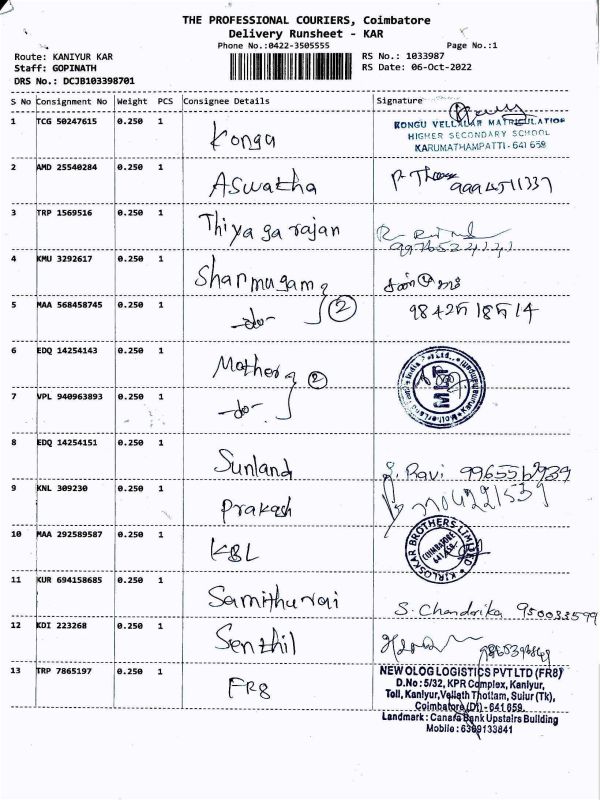 THE PROFESSIONAL COURIERS, Coimbatore
Delivery Runsheet - KAR
Phone No.:0422-3505555
Page No.:1
Route: KANIYUR KAR
Staff: GOPINATH
DRS No.: DCJB103398701
RS No.: 1033987
RS Date: 06-Oct-2022
S No Consignment No Weight PCS Consignee Details Signature
1 TCG 50247615 0.250 1 Kongu
KONGU VELLALAR MATRICULATION
HIGHER SECONDARY SCHOOL
KARUMATHAMPATTI - 641 659
2 AMD 25540284 0.250 1 Aswatha 9994511337
3 TRP 1569516 0.250 1 Thiyagarajan
4 KMU 3292617 0.250 1 Shanmugam
5 MAA 568458745 0.250 1 -do- 2 9842518514
6 EDQ 14254143 0.250 1 Mother
7 VPL 940963893 0.250 1 -do- 2
8 EDQ 14254151 0.250 1 Sunland
9 KNL 309230 0.250 1 Prakash
10 MAA 292589587 0.250 1 KBL
KIRLOSKAR BROTHERS LIMITED
COIMBATORE
11 KUR 694158685 0.250 1 S. Chandrika
12 KDI 223268 0.250 1 Senthil
13 TRP 7865197 0.250 1 FR8
NEW OLOG LOGISTICS PVT LTD (FR8)
D.No : 5/32, KPR Complex, Kaniyur,
Toll, Kaniyur, Thottam, Sulur (Tk),
Coimbatore (Dt) - 641 659.
Landmark : Canara Bank Upstairs Building
Mobile : 6369133841